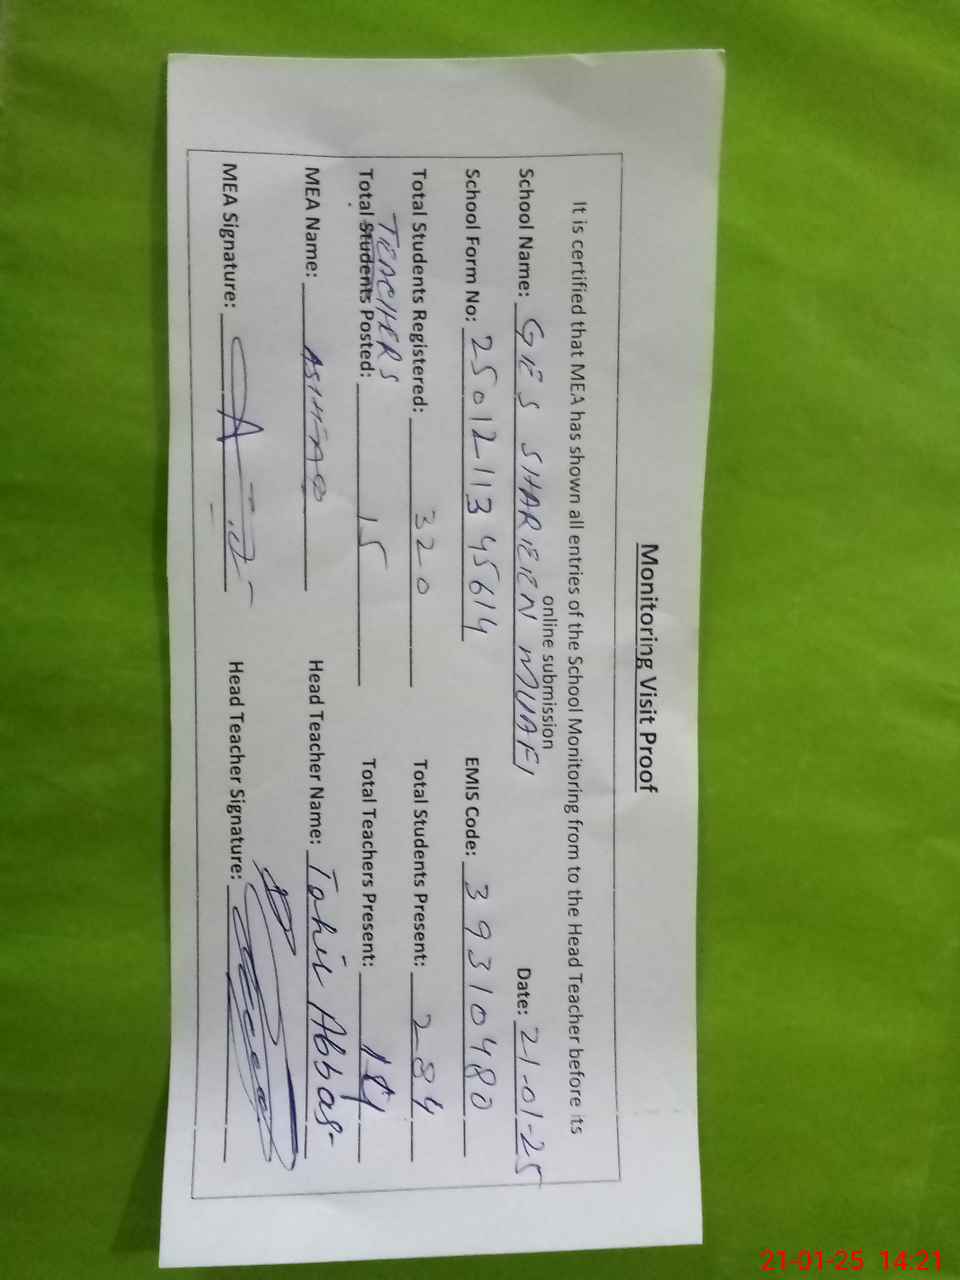 Monitoring Visit Proof
It is certified that MEA has shown all entries of the School Monitoring from to the Head Teacher before its
online submission
School Name: GES SHAREEN MUAFI Date: 21-01-25
School Form No: 25012113 45614 EMIS Code: 39310480
Total Students Registered: 320 Total Students Present: 284
TEACHERS
Total Students Posted: 15 Total Teachers Present: 14
MEA Name: ASHFAQ Head Teacher Name: Tahir Abbas
MEA Signature: Head Teacher Signature:
21-01-25 14:21